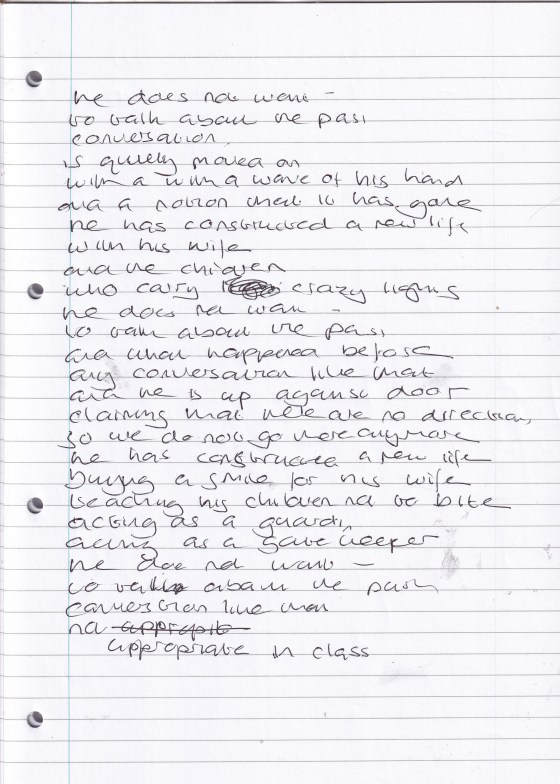 he does not want -
to talk about the past
conversation
is quietly moved on
with a with a wave of his hand
and a notion that it has gone
he has constructed a new life
with his wife
and the children
who carry crazy lights
he does not want -
to talk about the past
and what happened before
any conversation like that
and he is up against door
claiming that there are no direction,
so we do not go there anymore
he has constructed a new life
buying a smile for his wife
teaching his children not to bite
acting as a guard,
acting as a gate keeper
he does not want -
to talk about the past
conversation like that
not appropit
appropriate in class